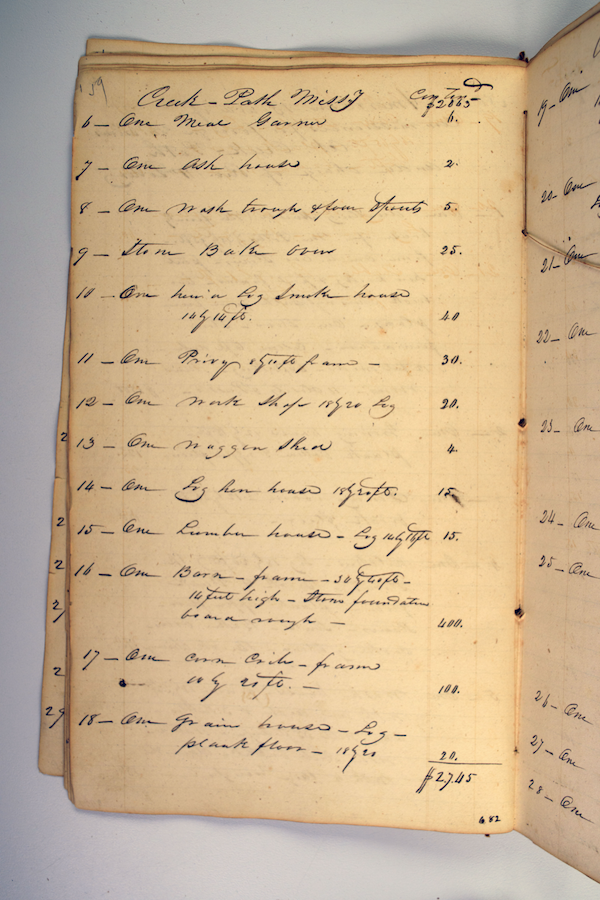 159
Creek-Path Miss^y Con,tin^d
$2063
6 – One Meal Garner 6.
7 – One Ash house 2.
8 – One Wash trough & four Spouts 5.
9 – Stone Bake Oven 25.
10 – One hew'd Log Smoke house
14 by 14 ft. 40
11 – One Privy 8 by 10 ft frame – 30.
12 – One Work Shop 18 by 20 Log 20.
13 – One Waggon Shed 4.
14 – One Log hen house 18 by 20 ft. 15
15 – One Lumber house – Log 14 by 16 ft 15.
16 – One Barn – frame – 34 by 40 ft –
14 feet high – Stone foundation
board rough – 400.
17 – One Corn Crib – frame
10 by 20 ft. – 100.
18 – One Grain house – Log –
plank floor – 18 by 20 20.
$2745
682
19 – One
20 – One
21 – One
22 – One
23 – One
24 – One
25 – One
26 – One
27 – One
28 – One
2
2
2
2
2
29